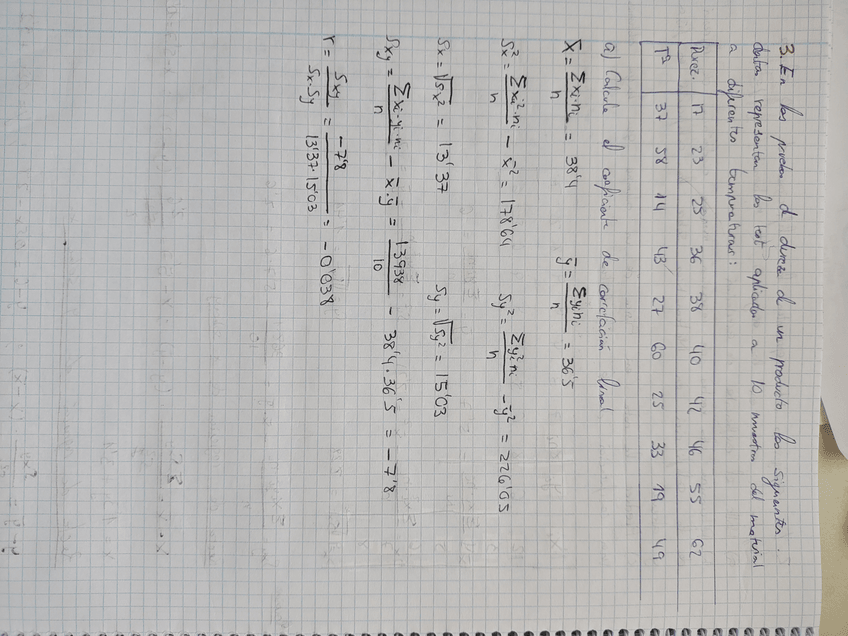 3. En las pruebas d dureza d un producto los siguientes
datos representan los test aplicados a 10 muestras del material
a diferentes temperaturas:
Durez. 17 23 25 36 38 40 42 46 55 62
Tª 37 58 14 43 27 60 25 33 19 49
a) Calcule el coeficiente de correlación lineal
x̄ = Σxi·ni / n = 38'4 ȳ = Σyi·ni / n = 36'5
Sx² = Σxi²·ni / n − x̄² = 178'64 Sy² = Σyi²·ni / n − ȳ² = 226'05
Sx = √Sx² = 13'37 Sy = √Sy² = 15'03
Sxy = Σxi·yi·ni / n − x̄·ȳ = 13938 / 10 − 38'4·36'5 = −7'8
r = Sxy / Sx·Sy = −7'8 / 13'37·15'03 = −0'038